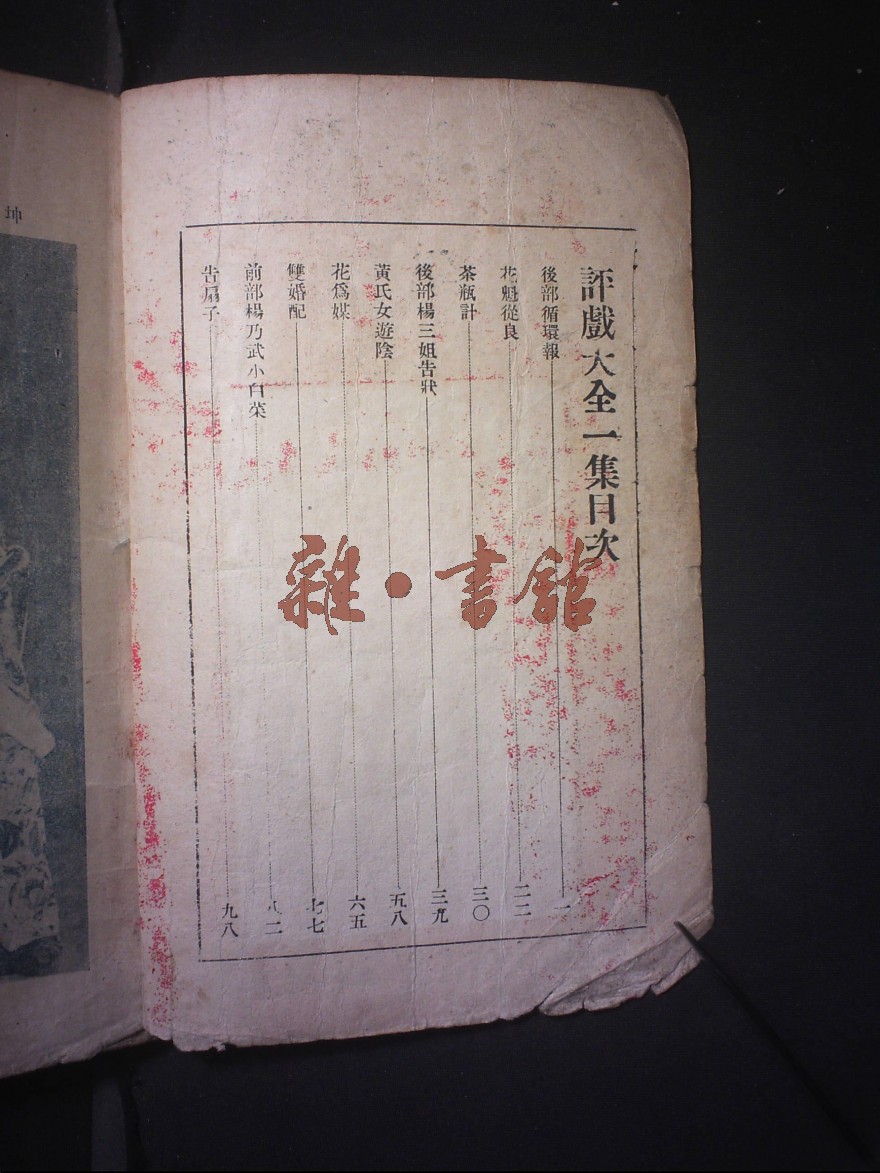 評戲大全一集目次
後部循環報 一
花魁從良 二二
茶瓶計 三〇
後部楊三姐告狀 三九
黃氏女遊陰 五八
花爲媒 六五
雙婚配 七七
前部楊乃武小白菜 八二
告扇子 九八
雜·書館
坤